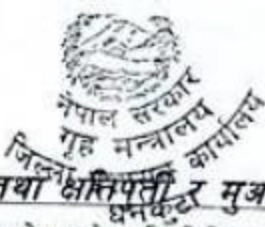 नेपाल सरकार
गृह मन्त्रालय
जिल्ला कार्यालय
धनकुटा
तथा क्षतिपूर्ती र मुअ